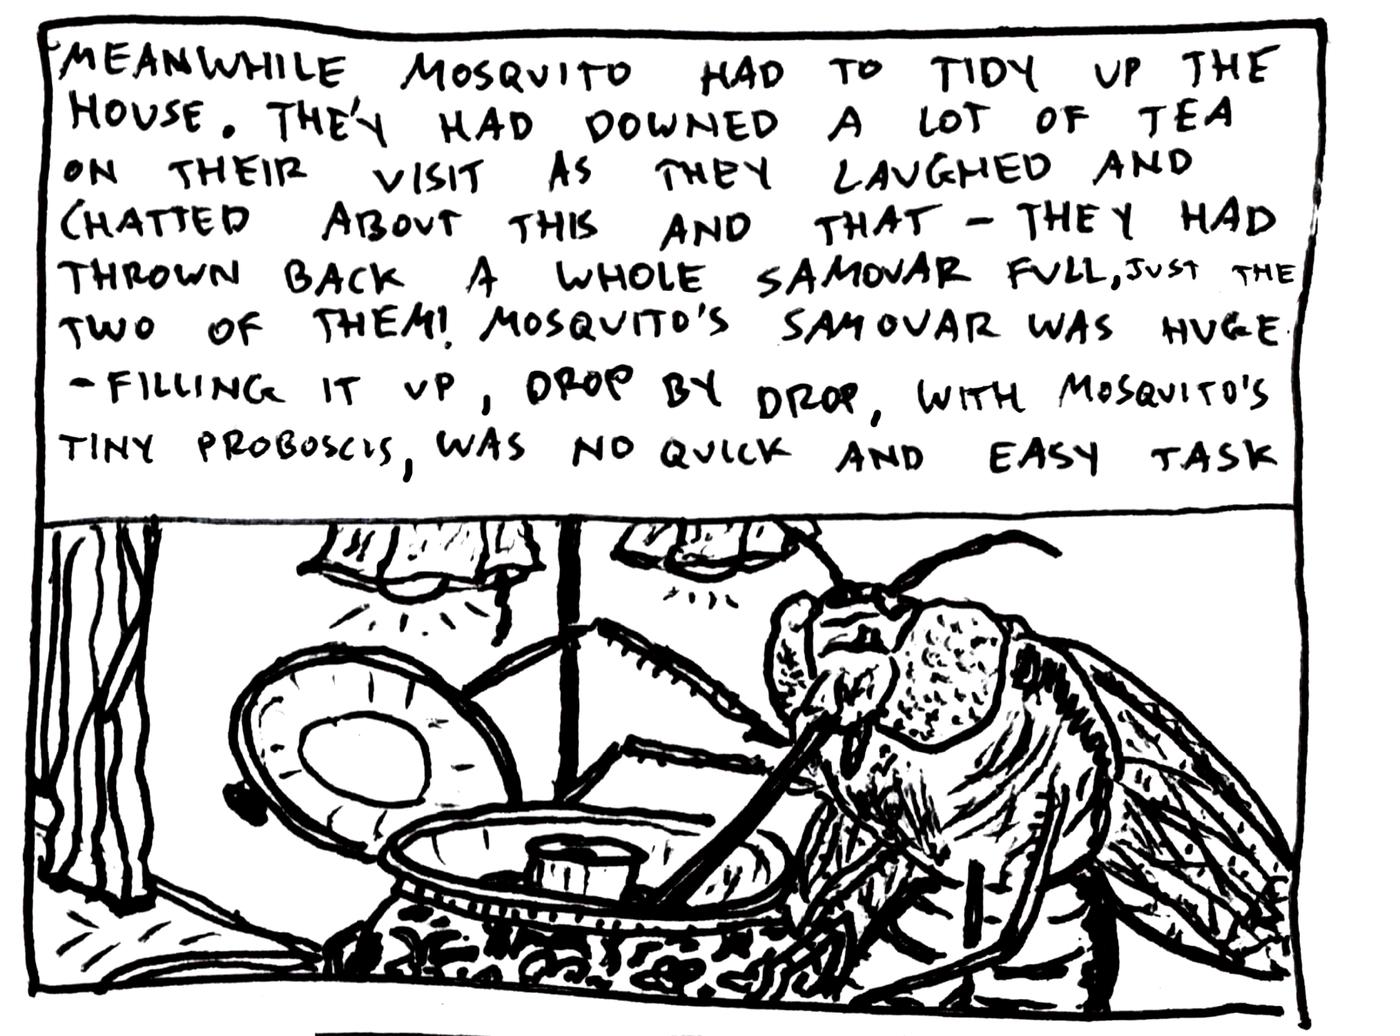 MEANWHILE MOSQUITO HAD TO TIDY UP THE
HOUSE. THE'Y HAD DOWNED A LOT OF TEA
ON THEIR VISIT AS THEY LAUGHED AND
CHATTED ABOUT THIS AND THAT - THEY HAD
THROWN BACK A WHOLE SAMOVAR FULL, JUST THE
TWO OF THEM! MOSQUITO'S SAMOVAR WAS HUGE
- FILLING IT UP, DROP BY DROP, WITH MOSQUITO'S
TINY PROBOSCIS, WAS NO QUICK AND EASY TASK